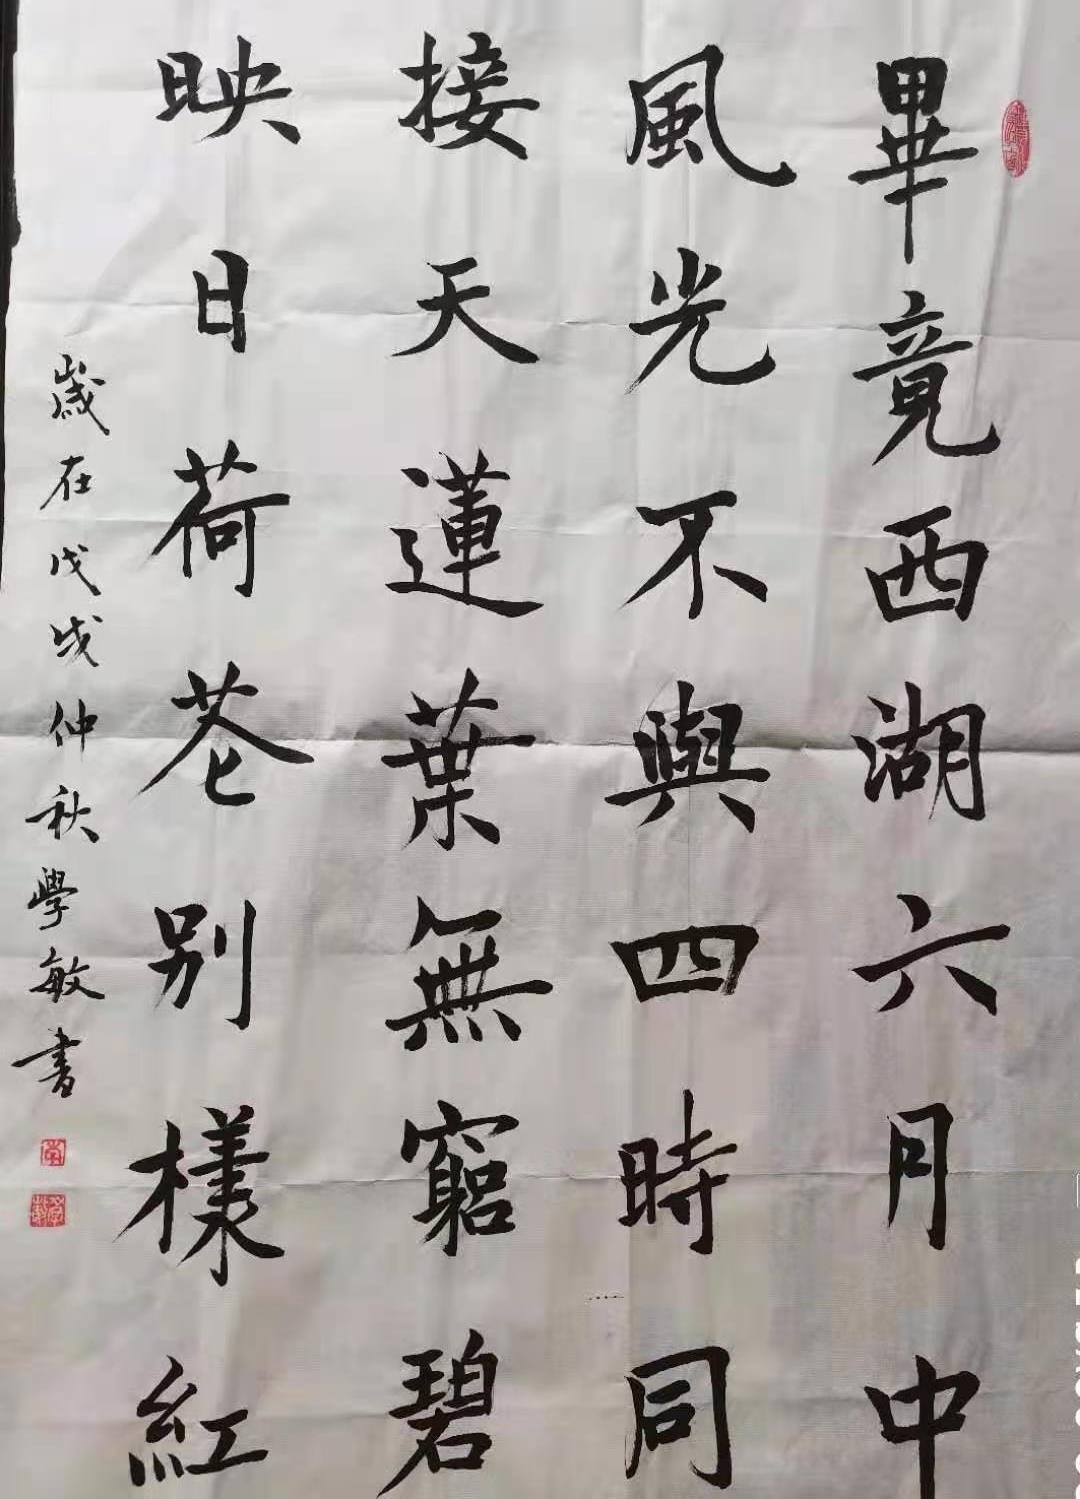 畢竟西湖六月中
風光不與四時同
接天蓮葉無窮碧
映日荷花别樣紅
歲在戊戌仲秋學敏書